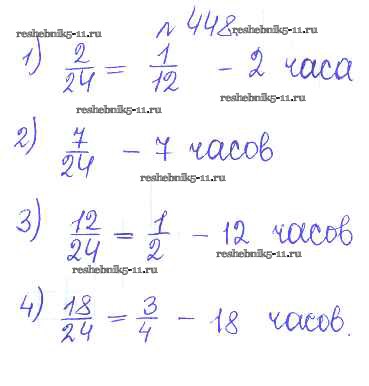 № 448.
reshebnik5-11.ru reshebnik5-11.ru
1) 2/24 = 1/12 - 2 часа
reshebnik5-11.ru
2) 7/24 - 7 часов
reshebnik5-11.ru
3) 12/24 = 1/2 - 12 часов
reshebnik5-11.ru reshebnik5-11.ru
4) 18/24 = 3/4 - 18 часов.